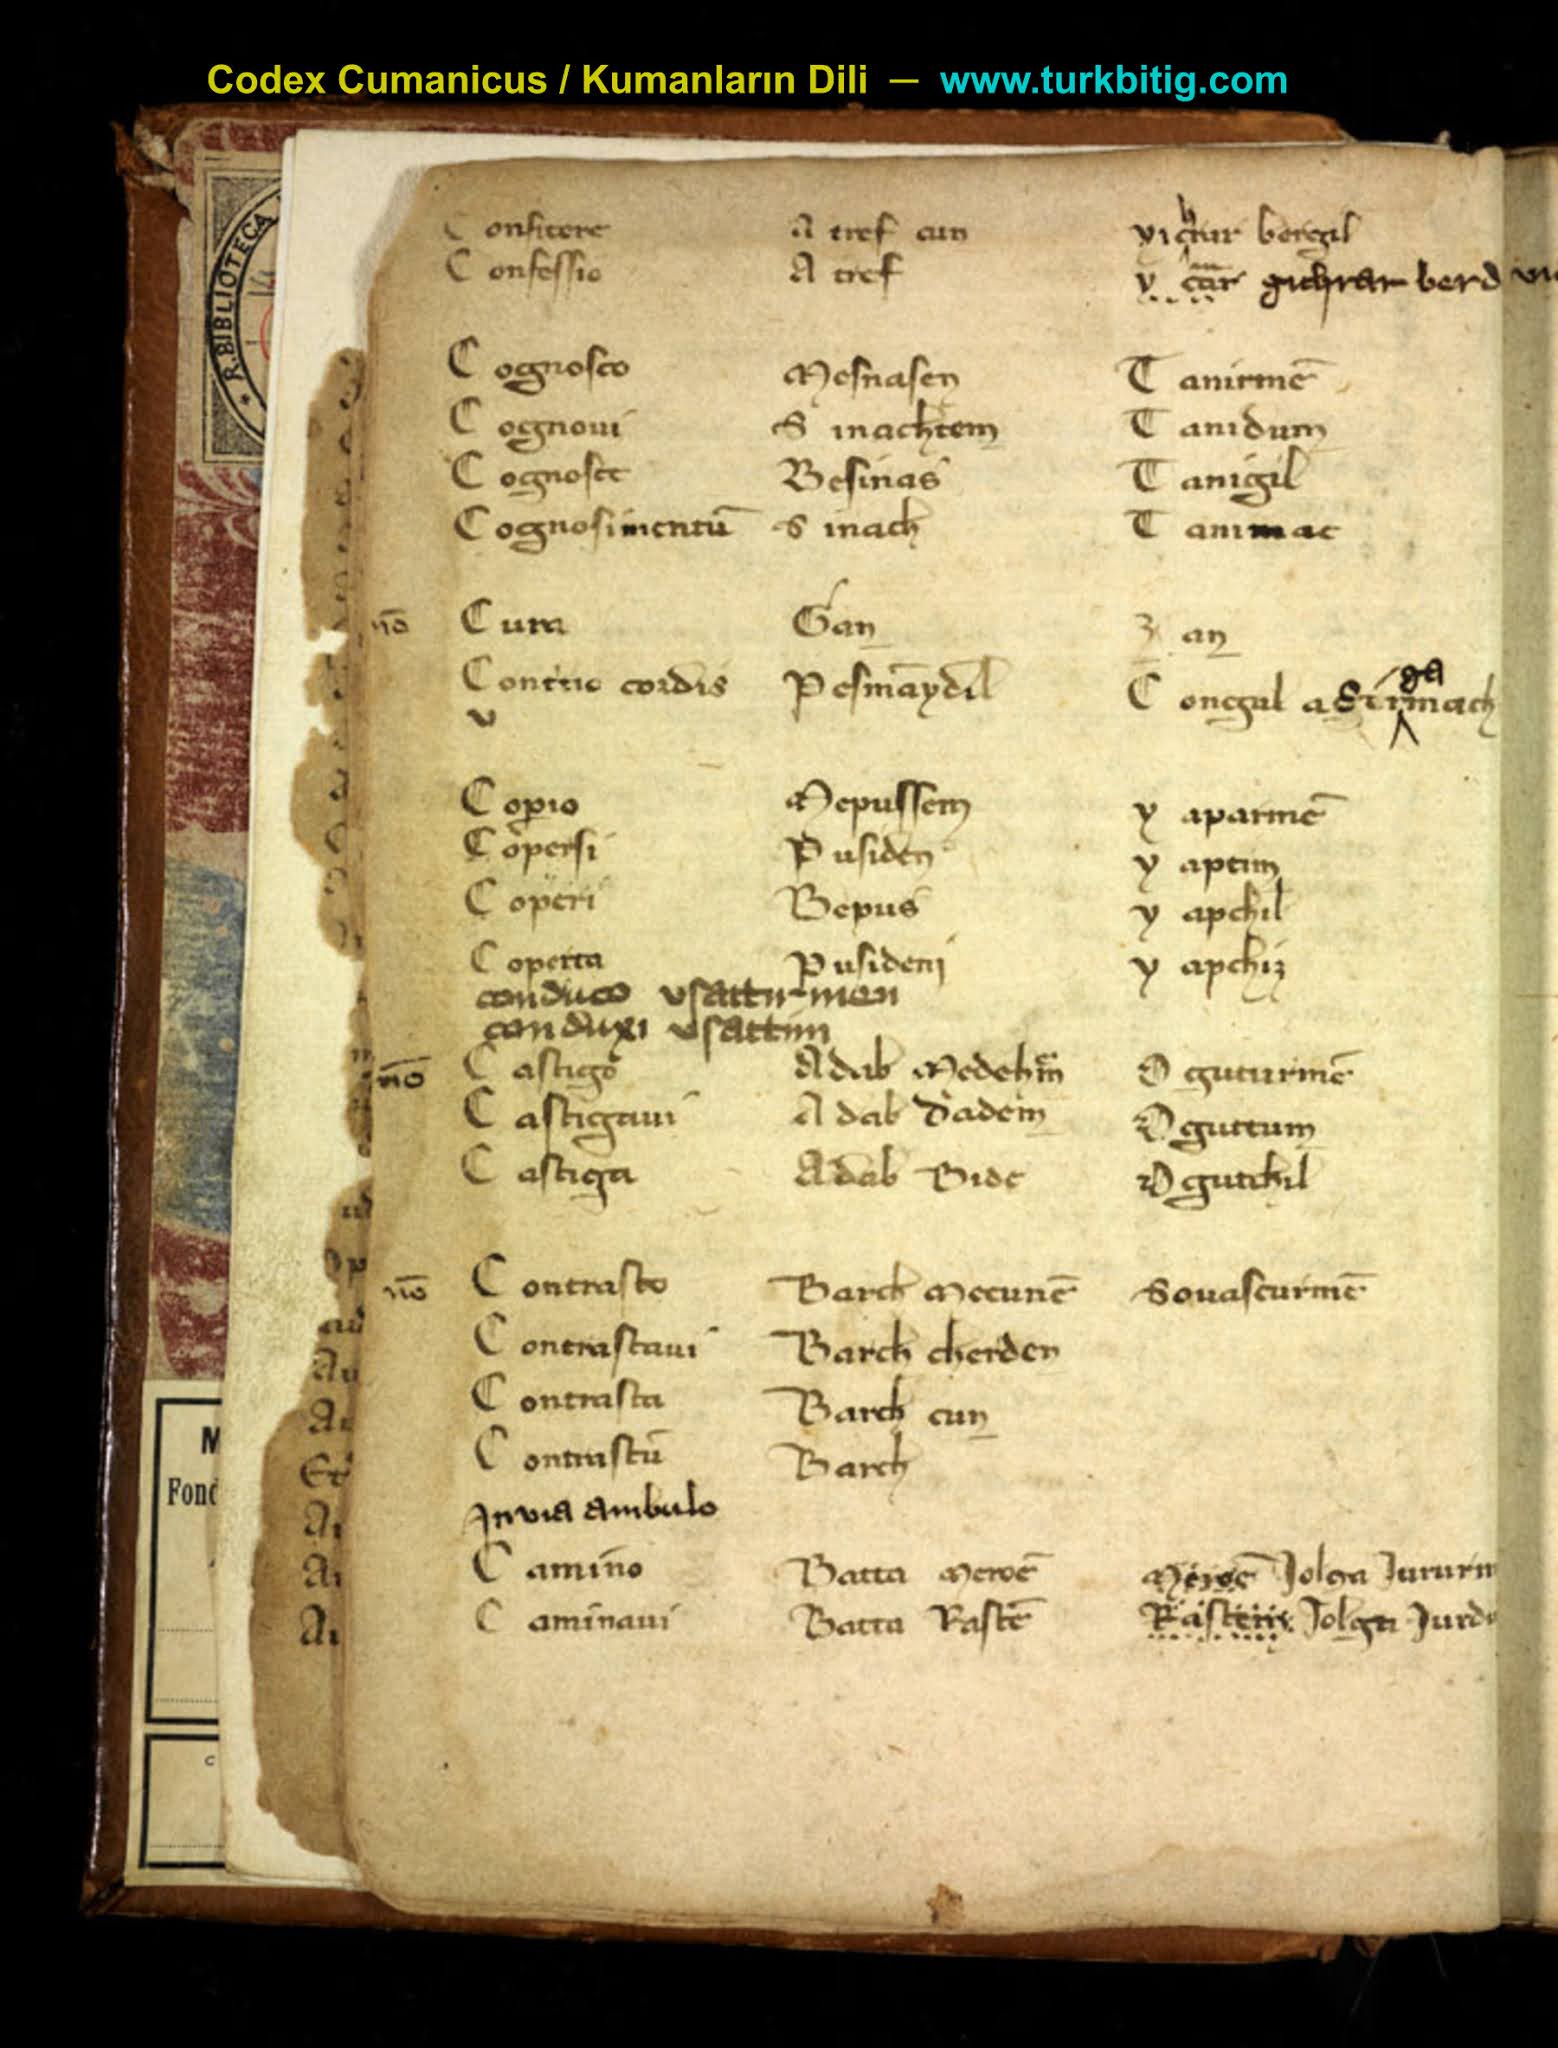 Codex Cumanicus / Kumanların Dili — www.turkbitig.com
R. BIBLIOTECA
Confitere A tref cun yictiar bergil
Confessio A tref
Cognosco Mesnasen Tanirmē
Cognoui Sinachtem Tanidum
Cognosce Besinas Tanigil
Cognosimentū Sinach Tanimac
nō Cura Gan an
cordis Congul
Copio Mepussem yaparmē
Copersi Pusiden yaptim
Coperi Bepus yapchil
Coperta Pusideni yapchiz
conduco vsatturmen
conduxi vsattim
nō Castigo Adab Oguturmē
Castigaui Adab dadem Oguttum
Castiga Adab Bide Ogutchil
nō Contrasto Barch Mecunē Souascurmē
Contrastaui Barch cherden
Contrasta Barch cun
Contrastū Barch
In via ambulo
Camino Batta Meroē Meroē Jolga
Caminaui Batta Rastē Rasten Jolga
M
Fond